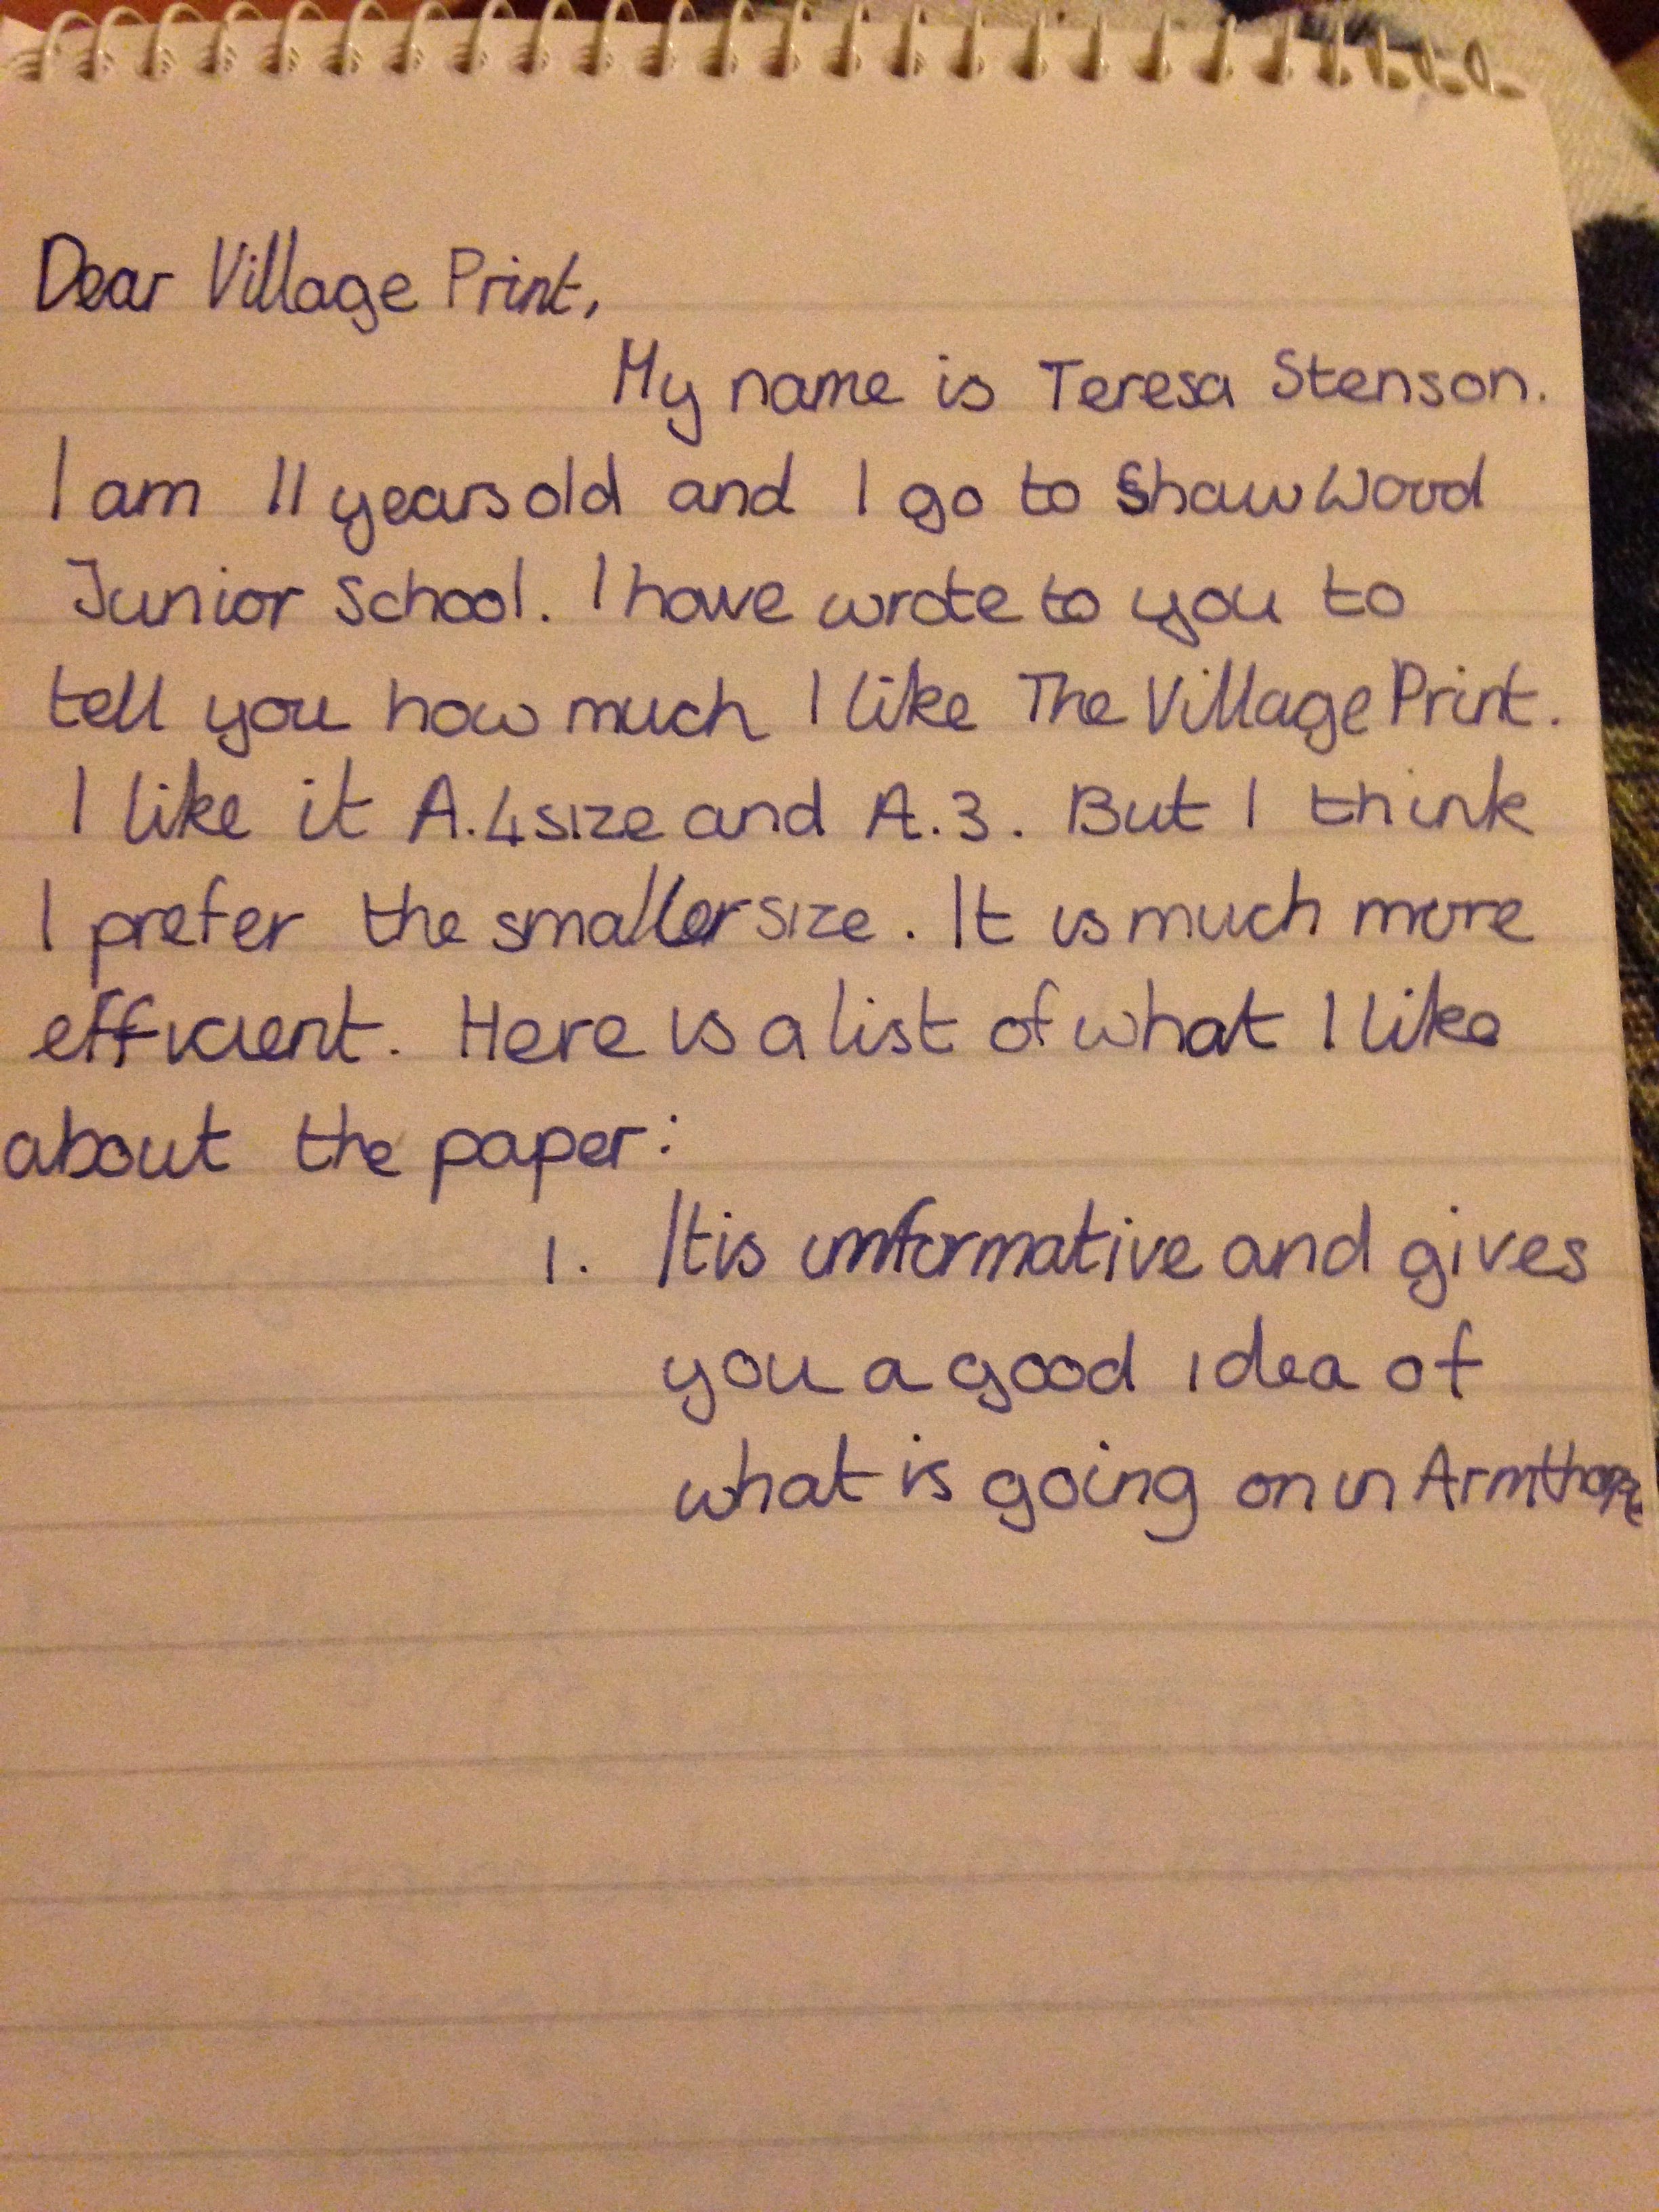 Dear Village Print,
My name is Teresa Stenson.
I am 11 years old and I go to Shaw Wood
Junior School. I have wrote to you to
tell you how much I like The Village Print.
I like it A.4 size and A.3. But I think
I prefer the smaller size. It is much more
efficient. Here is a list of what I like
about the paper:
1. It is imformative and gives
you a good idea of
what is going on in Armthorpe